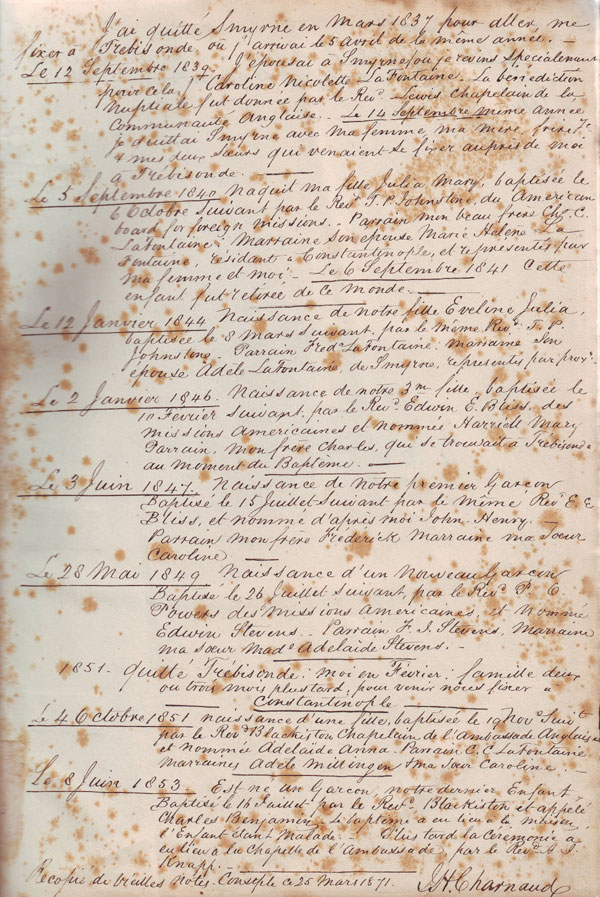 J'ai quitté Smyrne en Mars 1837 pour aller me
fixer à Trébisonde, où j'arrivai le 5 avril de la même année. —
Le 12 Septembre 1839 J'épousai à Smyrne, où je revins specialement
pour cela, Caroline Nicolette LaFontaine. La benediction
Nuptiale fut donnée par le Revd. Lewis Chapelain de la
Communauté Anglaise. — Le 14 Septembre même année
Je quittai Smyrne avec Ma femme, ma mère, frère
& mes deux Sœurs qui venaient se fixer auprès de moi
à Trébisonde. —
Le 5 Septembre 1840 Naquit ma fille Julia Mary, baptisée le
6 Octobre suivant par le Revd T. P. Johnston, du American
board for foreign missions. — Parrain mon beau frère Chs. C.
LaFontaine: Marraine Son epouse Marie Hélène La
Fontaine, residant à Constantinople, et representés par
Ma femme et moi — Le 6 Septembre 1841 Cette
enfant fut retirée de Ce Monde. —
Le 12 Janvier 1844 Naissance de notre fille Eveline Julia,
baptisée le 8 Mars suivant, par le même Revd. T. P.
Johnstone. Parrain Fredc LaFontaine. marraine Son
épouse Adèle LaFontaine de Smyrne, representés par proxi.
Le 2 Janvier 1846. Naissance de notre 3me fille, baptisée le
10 Fevrier suivant, par le Revd. Edwin E. Bliss, des
missions Americaines et nommée Harriett Mary
Parrain, Mon frère Charles, qui se trouvait à Trébisonde
au Moment du Baptême. —
Le 3 Juin 1847. Naissance de Notre premier Garçon
Baptisé le 15 Juillet Suivant par le Même Revd E. E
Bliss, et nommé d'après moi John Henry.
Parrain Mon frère Fréderick Marraine ma Sœur
Caroline —
Le 28 Mai 1849 Naissance d'un Nouveau Garçon
Baptisé le 26 Juillet Suivant, par le Revd. P. O.
Powers des Missions Americaines, et Nommé
Edwin Stevens. — Parrain F. I. Stevens. Marraine
ma Sœur Made Adelaide Stevens. —
1851. quitté Trébisonde: moi en Février: famille deux
ou trois mois plus tard, pour venir nous fixer à
Constantinople
Le 4 Octobre 1851 naissance d'une fille, baptisée le 19 Nove Suivt
par le Revd Blackiston Chapelain de l'ambassade Anglaise
et nommée Adelaide Anna. Parrain C. C. LaFontaine
Marraines Adèle Millingen & ma Sœur Caroline —
Le 8 Juin 1853. Est né un Garçon, notre dernier Enfant
Baptisé le 16 Juillet par le Revd. Blackiston et appelé
Charles Benjamin — Le baptême a eu lieu à la maison
l'Enfant étant Malade. — Plus tard la Ceremonie a
eu lieu à la Chapelle de l'Ambassade, par le Revd.
Knapp.
Recopié de vieilles Notes. Consple ce 25 Mars 1871. J. H. Charnaud